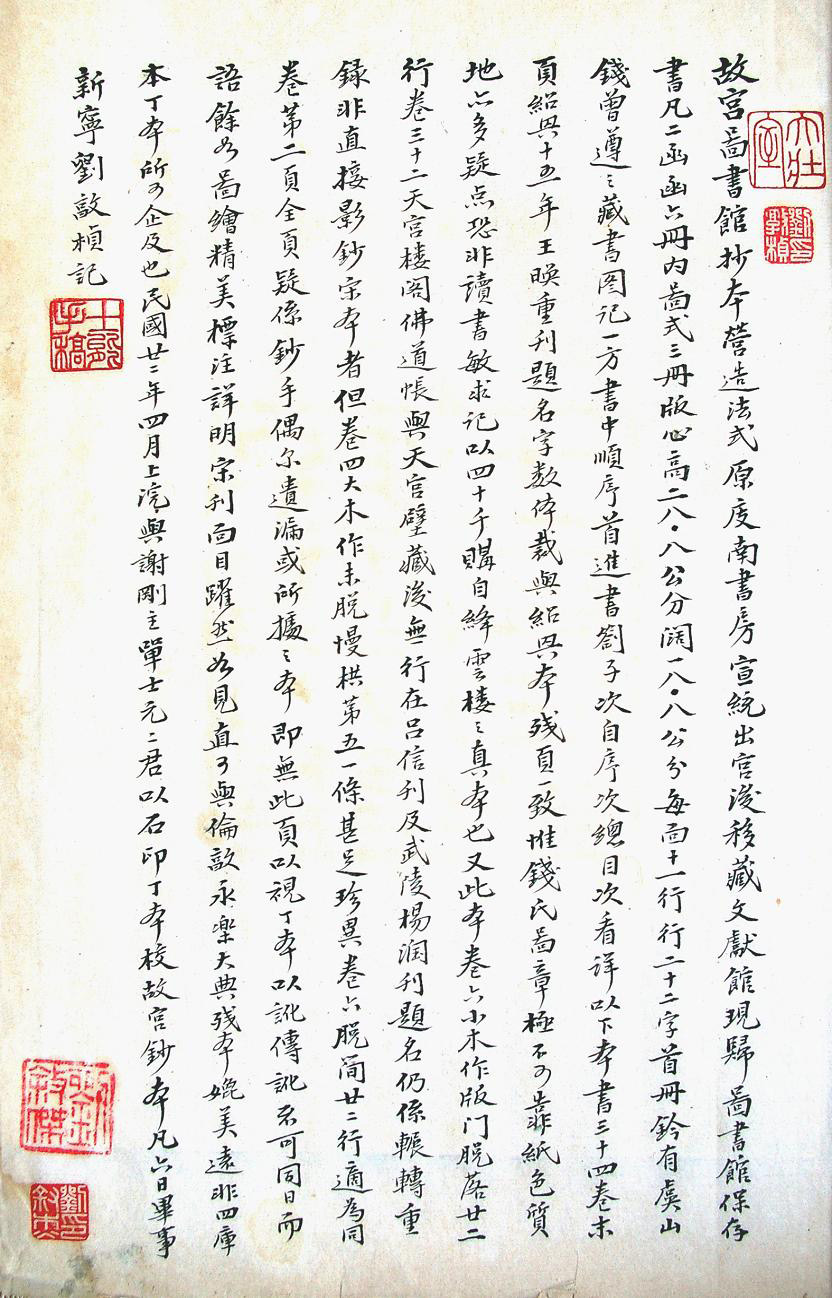 故宮啚書館抄本營造法式原庋南書房宣統出宮後移藏文獻館現歸啚書館保存
書凡二函函六冊内啚式三冊版心高二八·八公分濶一八·八公分每面十一行行二十二字首冊鈐有虞山
錢曾遵〻藏書图记一方書中順序首進書劄子次自序次總目次看详以下本書三十四卷末
頁紹興十五年王晚重刊題名字数体裁與紹興本残頁一致惟錢氏啚章極不可靠紙色質
地亦多疑点恐非讀書敏求记以四十千購自絳雲楼之真本也又此本卷六小木作版门脱落廿二
行卷三十二天宮楼阁佛道帳與天宮壁藏後無一行在吕信刊及武陵楊润刊題名仍係輾轉重
録非直接影鈔宋本者但卷四大木作未脱慢栱第五一條甚足珍異卷六脱简廿二行適為同
卷第二頁全頁疑係鈔手偶尔遺漏或所據之本即無此頁以視丁本以訛傳訛不可同日而
語餘如啚繪精美標注詳明宋刊面目躍然如見直可與倫敦永楽大典残本媲美遠非四庫
本丁本所可企及也民國廿二年四月上浣與謝剛主單士元二君以石印丁本校故宮鈔本凡六日畢事
新寧劉敦楨記
大壯室
劉印敦楨
士能手稿
劉敘傑
劉印敘杰